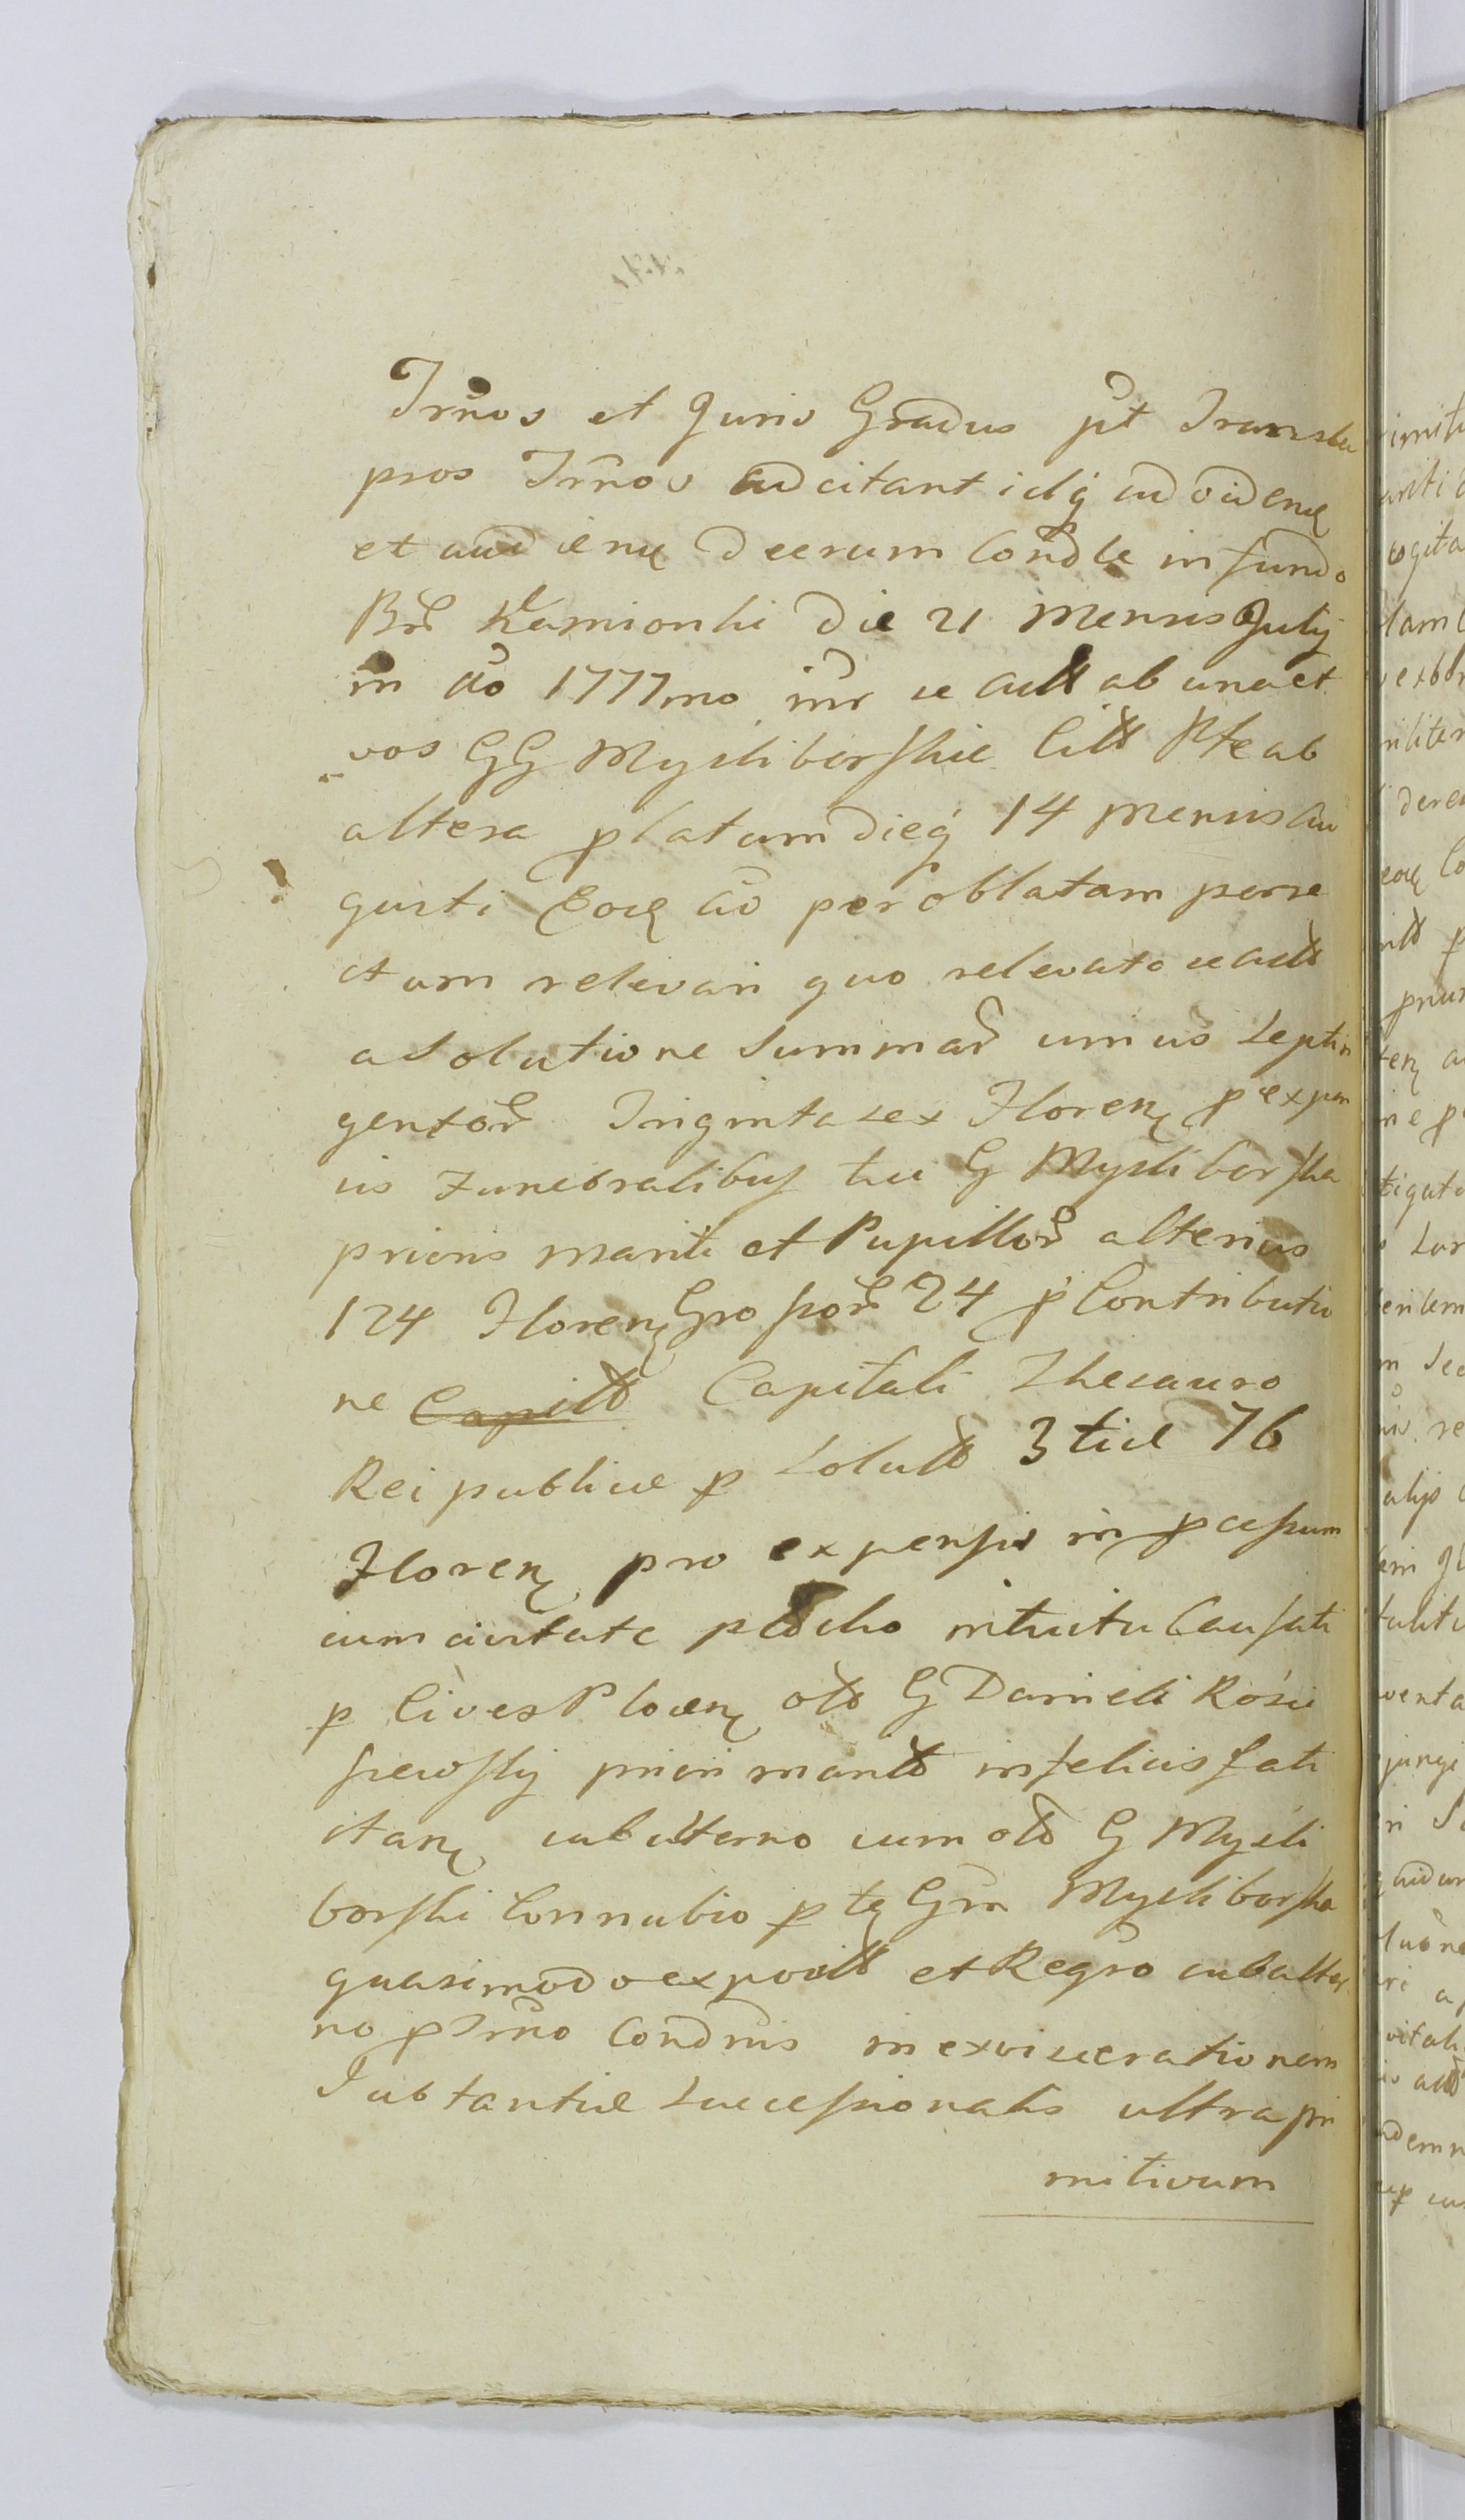 Trños et Juris Gradus pt Transla
pros Trños adcitant idq ad vidend
et audiend decrum Condle in fundo
Br Kamionki die 21 Mensis Julij
in Ao 1777mo inr se Actt ab una et
vos GG Mysliborskie Citt Pte ab
altera platum dieq 14 Mensis Au
gusti Eod Ao per oblatam porre
ctum relevari quo relevato se Actt
a Solutione Summar unius Septin
gentor Triginta sex Floren p expen
sis Funebralibus tui G Mysliborska
prioris mariti et Pupillor alterius
124 Floren Grossor 24 p Contributio
ne Capitt Capitali Thesauro
Rei publicæ p Solutt 3tiæ 76
Floren pro expensis in pcessum
cum civitate intuitu Causati
p Cives Plocen ott G Danieli Rości
szewskij priori maritt infelicis fati
itan ab æterno cum ott G Mysli
borski Connubio p te Gm Mysliborska
quasimodo expositt et Regro subalter
no p Trño Condnis in exviscerationem
Subtantiæ Successionalis ultra pri
mitivum